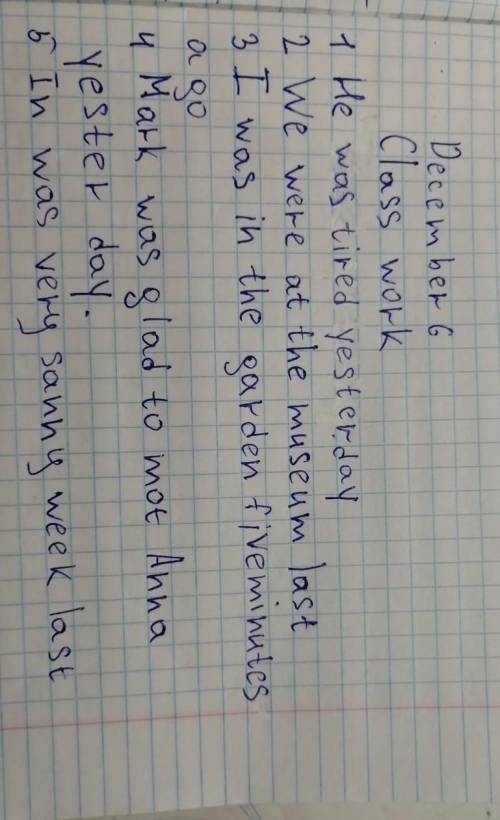 December 6
Class work
1 He was tired yesterday
2 We were at the museum last
3 I was in the garden fiveminutes
ago
4 Mark was glad to mot Anna
yester day.
5 In was very sanny week last